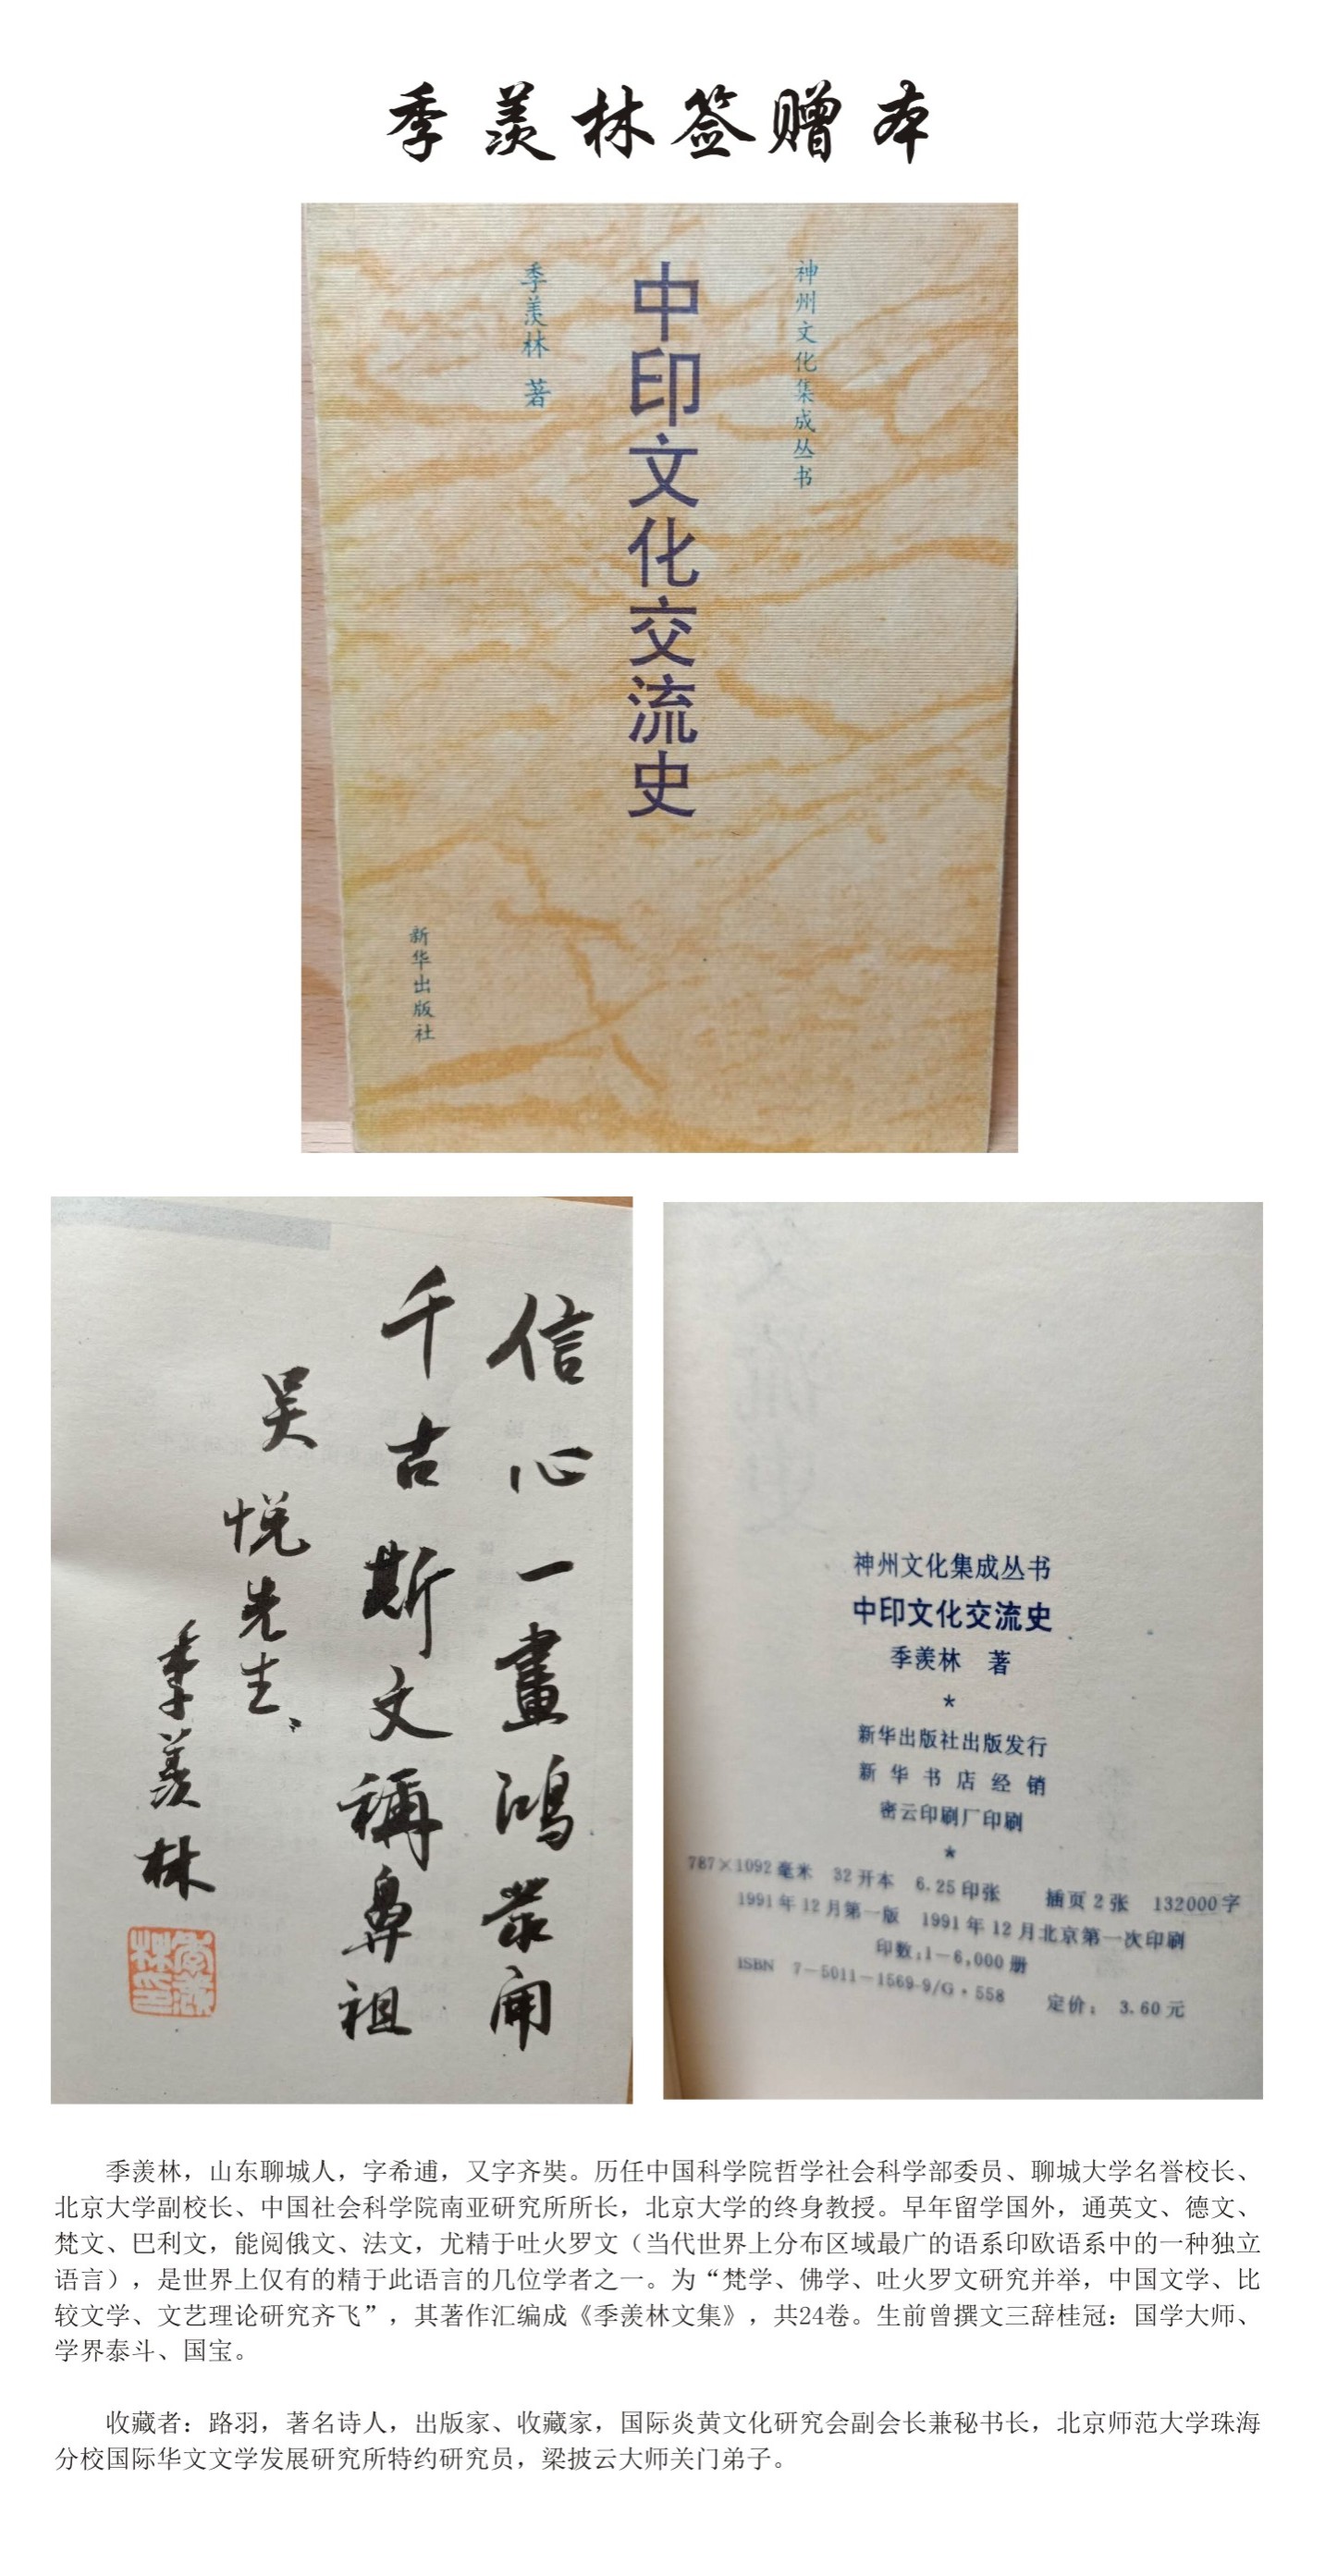 季羡林签赠本
神州文化集成丛书
中印文化交流史
季羡林 著
新华出版社
信心一畫鴻蒙闢
千古斯文稱鼻祖
吴悦先生、
季羡林
神州文化集成丛书
中印文化交流史
季羡林 著
*
新华出版社出版发行
新华书店经销
密云印刷厂印刷
*
787×1092毫米 32开本 6.25印张 插页2张 132000字
1991年12月第一版 1991年12月北京第一次印刷
印数:1—6,000册
ISBN 7-5011-1569-9/G·558 定价: 3.60元
季羡林，山东聊城人，字希逋，又字齐奘。历任中国科学院哲学社会科学部委员、聊城大学名誉校长、
北京大学副校长、中国社会科学院南亚研究所所长，北京大学的终身教授。早年留学国外，通英文、德文、
梵文、巴利文，能阅俄文、法文，尤精于吐火罗文（当代世界上分布区域最广的语系印欧语系中的一种独立
语言），是世界上仅有的精于此语言的几位学者之一。为“梵学、佛学、吐火罗文研究并举，中国文学、比
较文学、文艺理论研究齐飞”，其著作汇编成《季羡林文集》，共24卷。生前曾撰文三辞桂冠：国学大师、
学界泰斗、国宝。
收藏者：路羽，著名诗人，出版家、收藏家，国际炎黄文化研究会副会长兼秘书长，北京师范大学珠海
分校国际华文文学发展研究所特约研究员，梁披云大师关门弟子。